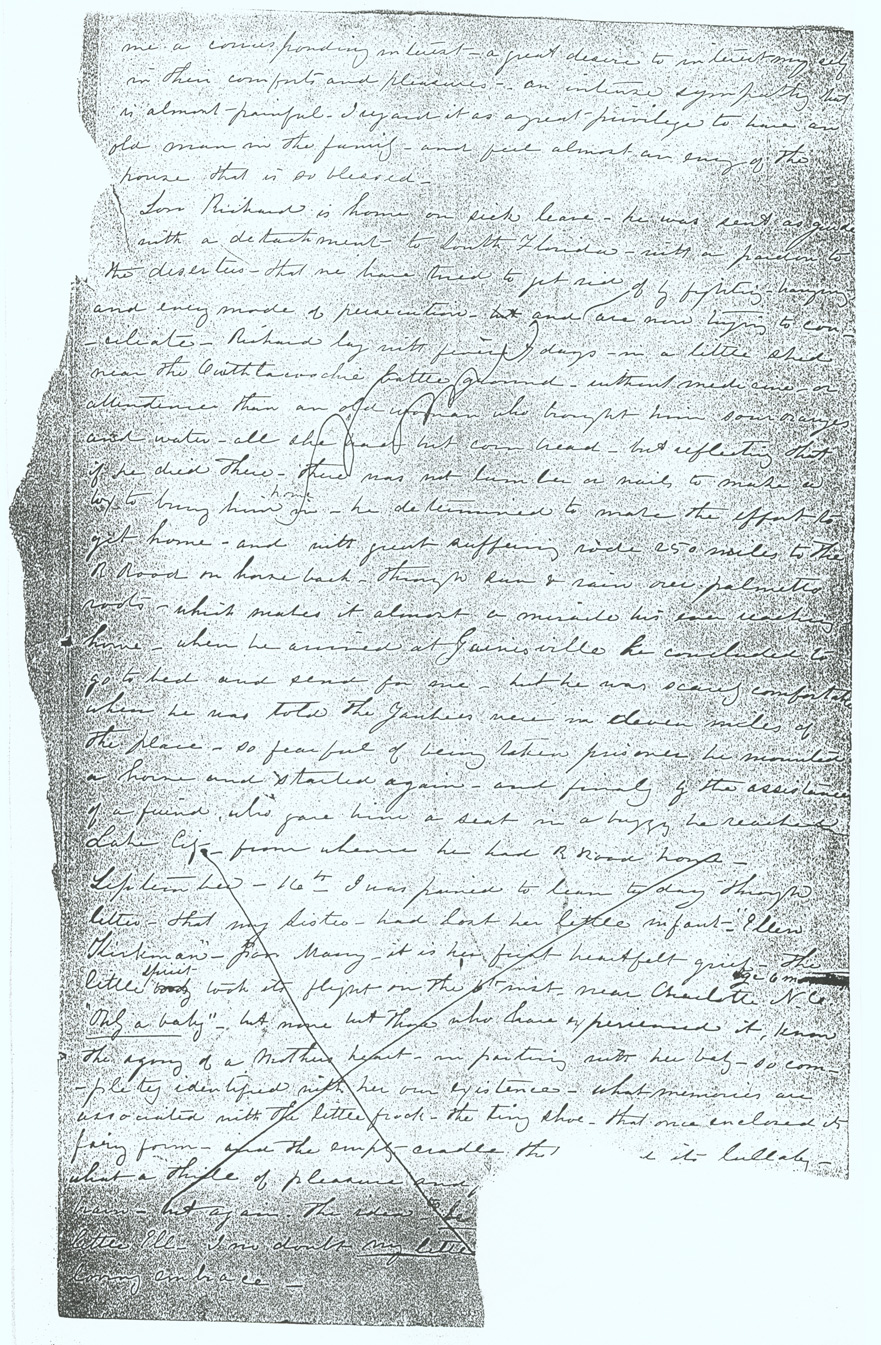 me a corresponding interest - a great desire to interest my self
in their comforts and pleasures - an intense sympathy that
is almost painful - I regard it as a great privilege to have an
old man in the family - and feel almost an envy of the
house that is so blessed -
Son Richard is home on sick leave - he was sent as guide
with a detachment to South Florida - with a pardon to
the deserters - that we have tried to get rid of by fighting - hanging
and every mode of persecution - but and are now trying to con-
- ciliate - Richard lay with fever 7 days - in a little shed
near the battle ground - without medicine - or
attendence than an old woman who brought him sour oranges
and water - all she had but corn bread - but reflecting that
if he died there - there was not lumber or nails to make a
box to bring him home in - he determined to make the effort to
get home - and with great suffering rode 250 miles to the
R Road on horse back - through sun & rain over palmetto
roots - which makes it almost a miracle his ever reaching
home - when he arrived at Gainesville he concluded to
go to bed and send for me - but he was scarcely comfortable
when he was told the Yankees were in eleven miles of
the place - so fearful of being taken prisoner he mounted
a horse and started again - and finaly by the assistance
of a friend who gave him a seat in a buggy he reached
Lake City - from whence he had R Road home -
September - 16th I was pained to learn to day through
letter - that my Sister - had lost her little infant - "Ellen
Kirkman" - Poor Mary - it is her first heartfelt grief - The
little spirit took its flight on the inst. near Charlotte N. C. age 6 mo
"Only a baby" - but none but those who have experienced it, know
the agony of a Mothers heart - in parting with her baby - so com-
- pletely identified with her own existence - what memories are
associated with the little frock - the tiny shoe - that once enclosed its
fairy form - and the empty cradle its lullaby -
what a thrill of pleasure and
pain - but again the idea
little Ell - I no doubt my little
loving embrace -